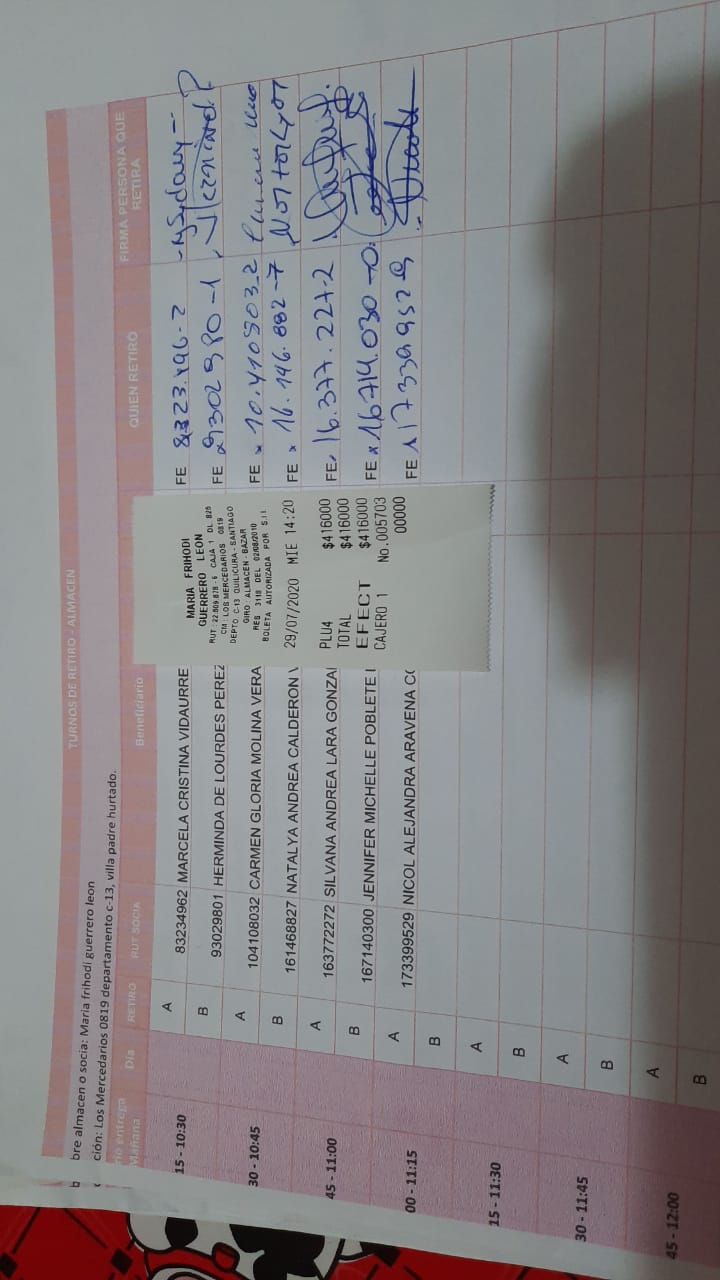 TURNOS DE RETIRO - ALMACEN
bre almacen o socia: Maria frihodi guerrero leon
ción: Los Mercedarios 0819 departamento c-13, villa padre hurtado.
io entrega Mañana Día RETIRO RUT SOCIA Beneficiario QUIEN RETIRO FIRMA PERSONA QUE RETIRA
15 - 10:30 A 83234962 MARCELA CRISTINA VIDAURRE FE 8323.496-2
B 93029801 HERMINDA DE LOURDES PEREZ FE 9302980-1
30 - 10:45 A 104108032 CARMEN GLORIA MOLINA VERA FE x 10.410803-2
B 161468827 NATALYA ANDREA CALDERON V FE x 16.146.882-7
45 - 11:00 A 163772272 SILVANA ANDREA LARA GONZA FE 16.377.227-2
B 167140300 JENNIFER MICHELLE POBLETE FE x 16714.030-0
00 - 11:15 A 173399529 NICOL ALEJANDRA ARAVENA CO FE 173399529
B
15 - 11:30 A
B
30 - 11:45 A
B
45 - 12:00 A
B
MARIA FRIHODI
GUERRERO LEON
RUT : 22.809.878 - 6 CAJA 1 DL 825
CM : LOS MERCEDARIOS 0819
DEPTO. C-13 QUILICURA - SANTIAGO
GIRO : ALMACEN - BAZAR
RES 3118 DEL 02/08/2010
BOLETA AUTORIZADA POR S.I.I.
29/07/2020 MIE 14:20
PLU4 $416000
TOTAL $416000
EFECT $416000
CAJERO 1 No.005703
00000